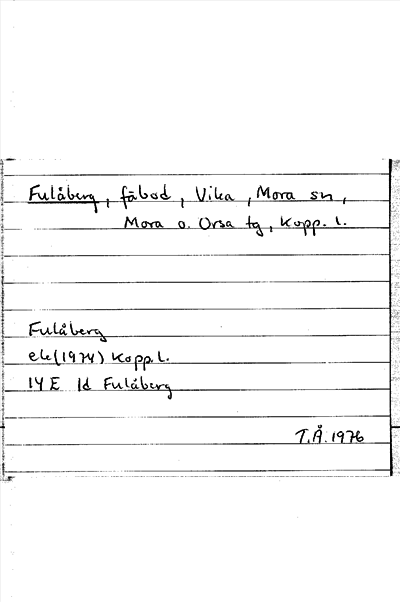 Fulåberg, fäbod, Vika, Mora sn,
Mora o. Orsa tg, Kopp. l.
Fulåberg
ek(1974) Kopp. l.
14 E 1d Fulåberg
T.Å. 1976